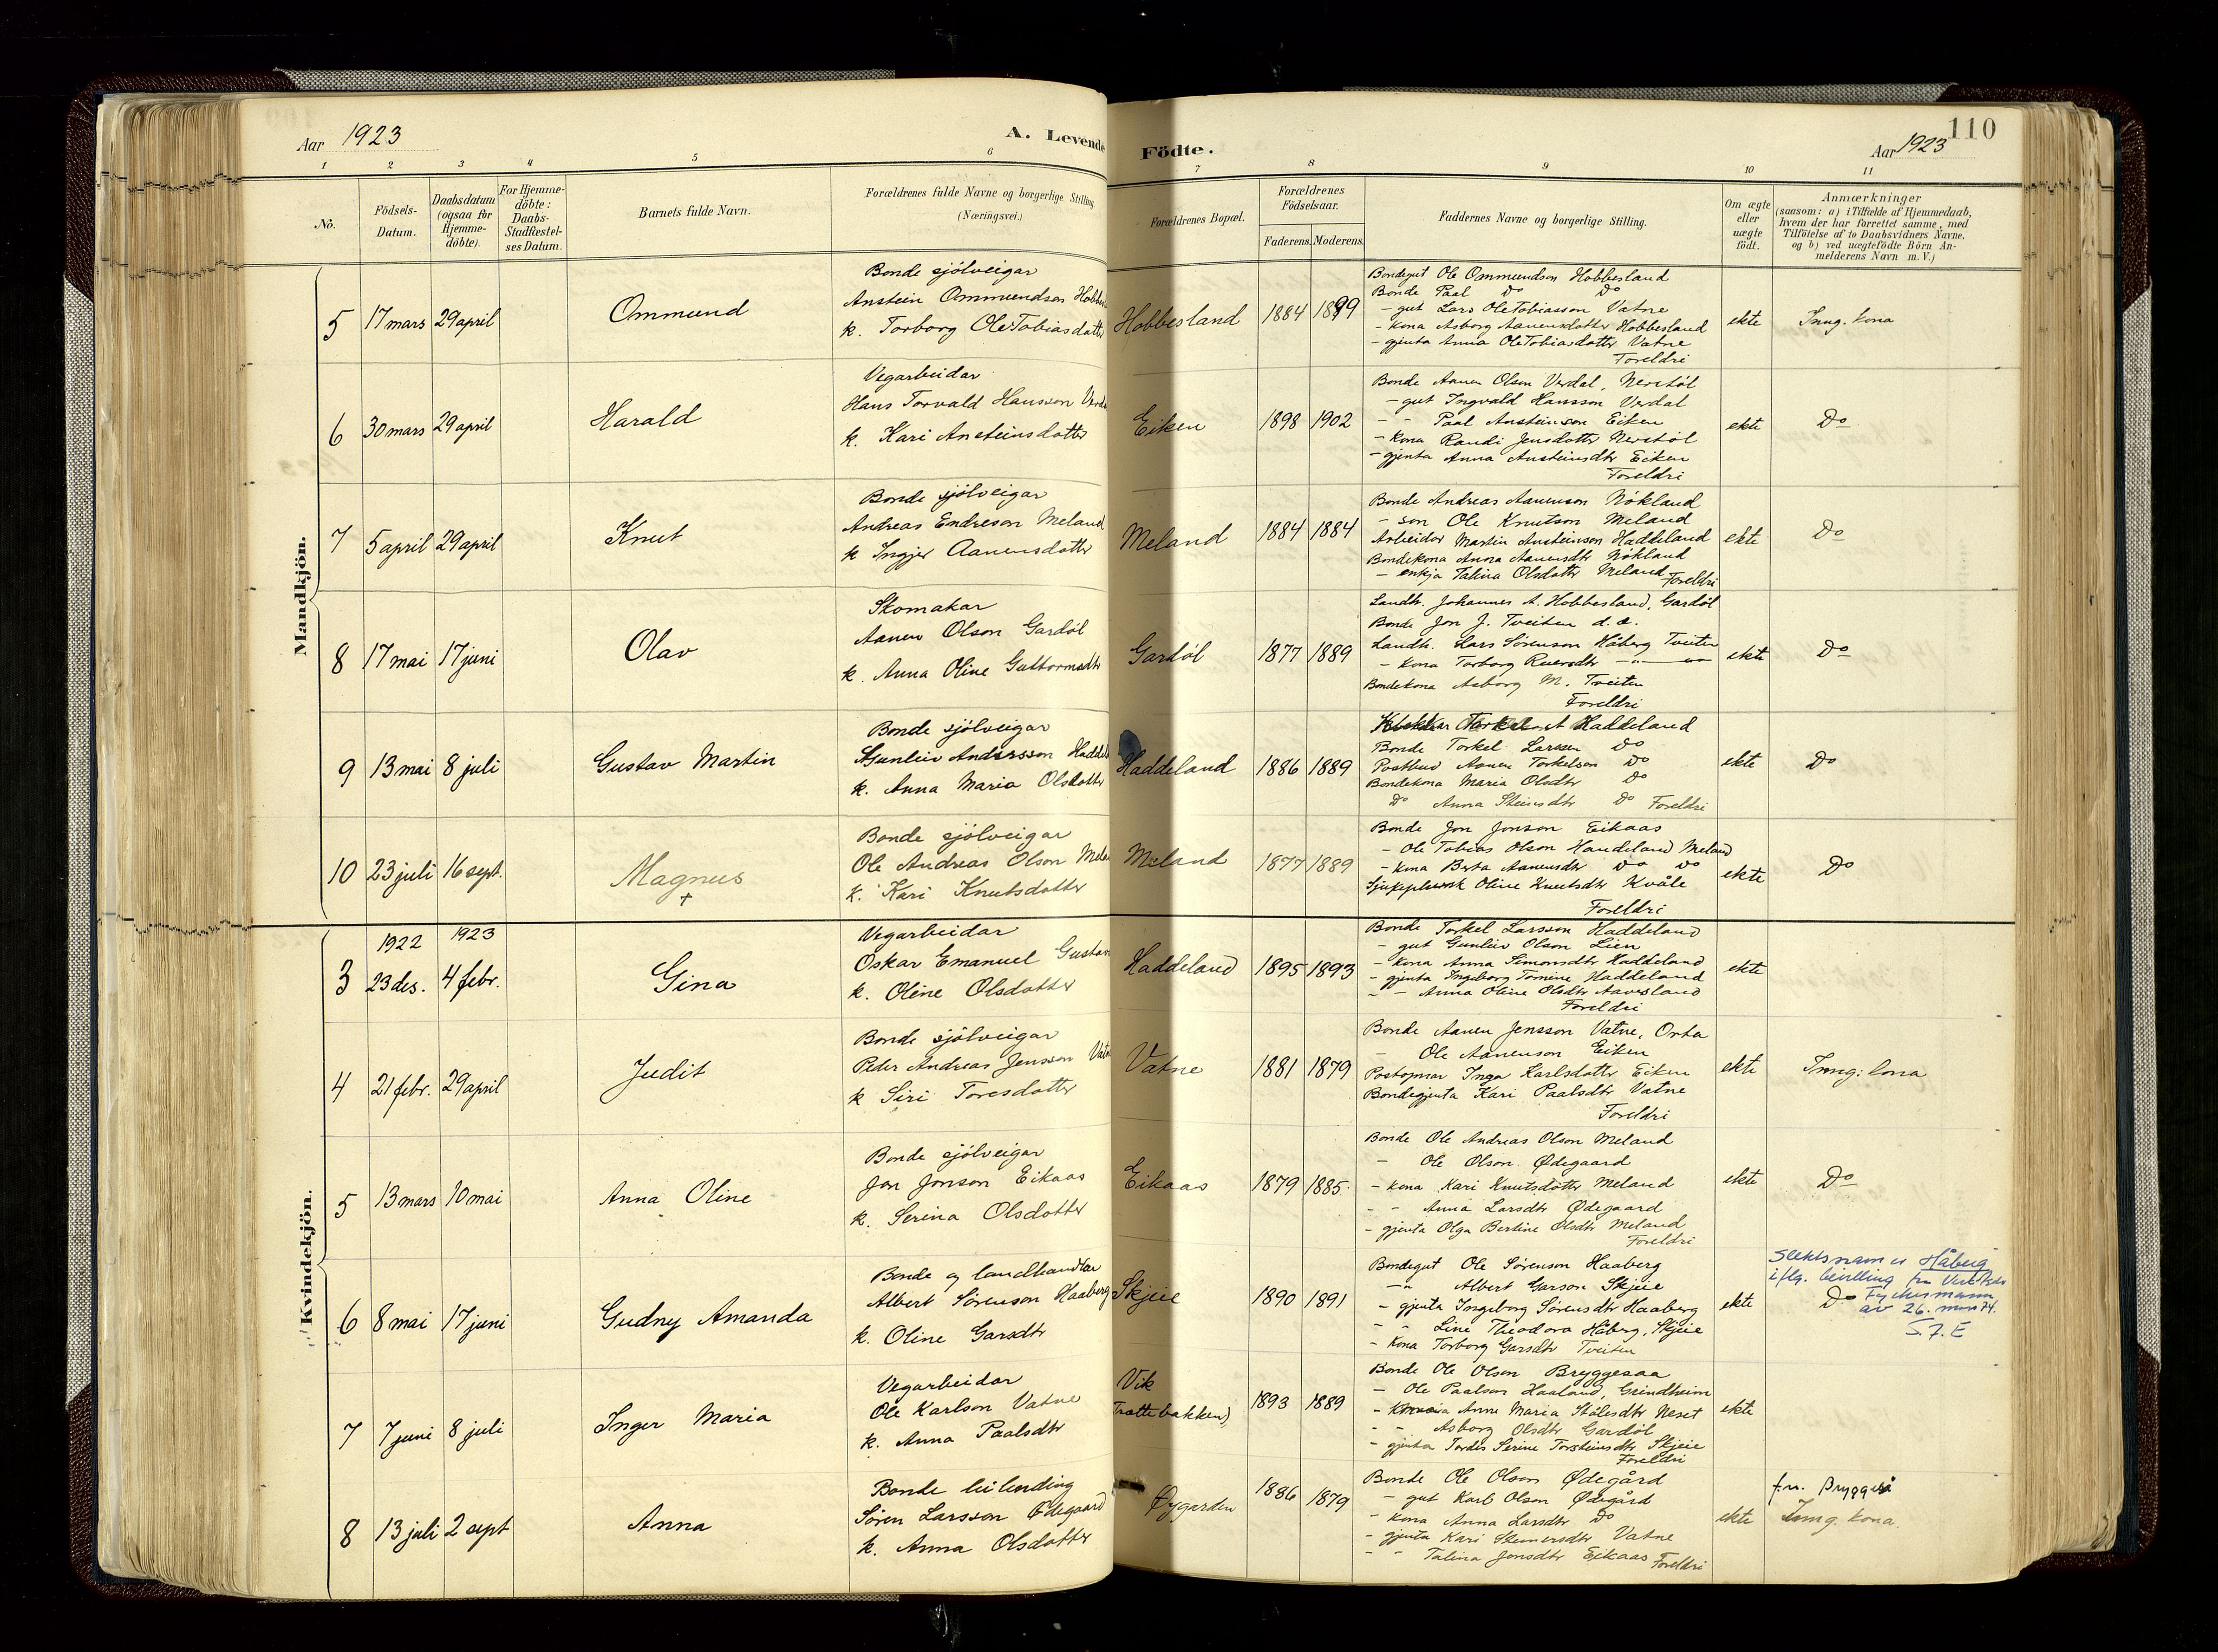 Aar 1923
A. Levende Födte.
Aar 1923
110
1 2 3 4 5 6 7 8 9 10 11
No.
Födsels-Datum.
Daabsdatum (ogsaa for Hjemme-döbte).
For Hjemme-döbte: Daabs-Stadfæstel-ses Datum.
Barnets fulde Navn.
Forældrenes fulde Navne og borgerlige Stilling (Næringsvei.)
Forældrenes Bopæl.
Forældrenes Födselsaar.
Faderens. Moderens.
Faddernes Navne og borgerlige Stilling.
Om ægte eller uægte födt.
Anmærkninger
(saasom: a) i Tilfælde af Hjemmedaab,
hvem der har forrettet samme, med
Tilföielse af to Daabsvidners Navne.
og b) ved uægtefödte Börn An-
melderens Navn m.V.)
Mandkjön.
5 17 mars 29 april
Ommund
Bonde sjölveigar
Anstein Ommundson
k. Torborg OleTobiasdotter
Hobbesland
1884 1899
Bondegut Ole Ommundson Hobbesland
Bonde Paal Do Do
- gut Lars OleTobiasson Vatne
- kona Asborg Aanensdotter Hobbesland
- gjenta Anna OleTobiasdotter Vatne
Foreldri
ekte
Inng. kona
6 30 mars 29 april
Harald
Vegarbeidar
Hans Torvald Hansson
k. Kari Ansteinsdotter
Eiken
1898 1902
Bonde Aanen Olson Verdal, Nerstøl
- gut Ingvald Hansson Verdal
- - Paal Ansteinson Eiken
- kona Randi Jensdotter Nerstøl
- gjenta Anna Ansteinsdtr Eiken
Foreldri
ekte
Do
7 5 april 29 april
Knut
Bonde sjölveigar
Andreas Endreson Meland
k Ingjer Aanensdotter
Meland
1884 1884
Bonde Andreas Aanenson Nökland
- son Ole Knutson Meland
Arbeidar Martin Ansteinson Haddeland
Bondekona Anna Aanensdtr Nökland
- enkja Talina Olsdotter Meland Foreldri
ekte
Do
8 17 mai 17 juni
Olav
Skomakar
Aanen Olson Gardöl
k. Anna Oline Guttormsdtr
Gardöl
1877 1889
Landh. Johannes A. Hobbesland, Gardöl
Bonde Jon J. Tveiten
Landh. Lars Sörenson Håberg Tveiten
- kona Torborg
Bondekona Asborg M. Tveiten
Foreldri
ekte
Do
9 13 mai 8 juli
Gustav Martin
Bonde sjölveigar
Gunleiv Andersson
k. Anna Maria Olsdotter
Haddeland
1886 1889
Haddeland
Bonde Torkel Larsson Do
Postbud Aanen Torkelson Do
Bondekona Maria Olsdtr Do
Do Anna Steinsdtr Do Foreldri
ekte
Do
10 23 juli 16 sept.
Magnus
+
Bonde sjölveigar
Ole Andreas Olson
k. Kari Knutsdotter
Meland
1877 1889
Bonde Jon Jonson Eikaas
- Ole Tobias Olson Haudeland Meland
- kona Berta Aanensdtr Do Do
Oline Knutsdtr Kvåle
Foreldri
ekte
Do
Kvindekjön.
1922 1923
3 23 des. 4 febr.
Gina
Vegarbeidar
Oskar Emanuel
k. Oline Olsdotter
Haddeland
1895 1893
Bonde Torkel Larsson Haddeland
- gut Gunleiv Olson Lien
- kona Anna Simonsdtr Haddeland
- gjenta Ingeborg Tomine Haddeland
- - Anna Oline Olsdtr Aavesland
Foreldri
ekte
4 21 febr. 29 april
Judit
Bonde sjölveigar
Peder Andreas Jensson
k Siri Toresdotter
Vatne
1881 1879
Bonde Aanen Jensson Vatne, Orta
- Ole Aanenson Eiken
Postopnar Inga Karlsdotter Eiken
Bondegjenta Kari Paalsdtr Vatne
Foreldri
ekte
Inng: kona
5 13 mars 10 mai
Anna Oline
Bonde sjölveigar
Jon Jonson Eikaas
k. Serina Olsdotter
Eikaas
1879 1885
Bonde Ole Andreas Olson Meland
- Ole Olson Ødegaard
- kona Kari Knutsdotter Meland
- - Anna Larsdtr Ødegaard
- gjenta Olga Bertine Olsdtr Meland
Foreldri
ekte
Do
6 8 mai 17 juni
Gudny Amanda
Bonde og landhandlar
Albert Sörenson Haaberg
k. Oline Garsdtr
Skjeie
1890 1891
Bondegut Ole Sörenson Haaberg
Albert Garson Skjeie
- gjenta Ingeborg Sörensdtr Haaberg
- - Line Theodora Håberg, Skjeie
- kona Torborg Garsdtr Tveiten
ekte
Slektsnamn er Håberg
iflg. bevilling fra Vest-Agder
Do Fylkesmann
av 26. mars 74.
S.F.E
7 7 juni 8 juli
Inger Maria
Vegarbeidar
Ole Karlson Vatne
k. Anna Paalsdtr
Vik
Trættebakken)
1893 1889
Bonde Ole Olson Bryggesaa
- Ole Paalson Haaland, Grindheim
- Anne Maria Ståлesdtr Neset
- - Asborg Olsdtr Gardöl
- gjenta Tordis Serine Torsteinsdtr Skjeie
Foreldri
ekte
8 13 juli 2 sept
Anna
Bonde leilending
Sören Larsson Ødegaard
k. Anna Olsdotter
Øygarden
1886 1879
Bonde Ole Olson Ødegård
- gut Karl Olson Ødegård
- kona Anna Larsdtr Do
- gjenta Kari Steinersdtr Vatne
- - Talina Jonsdtr Eikaas Foreldri
ekte
f.n. Bryggeså
Inng. kona.